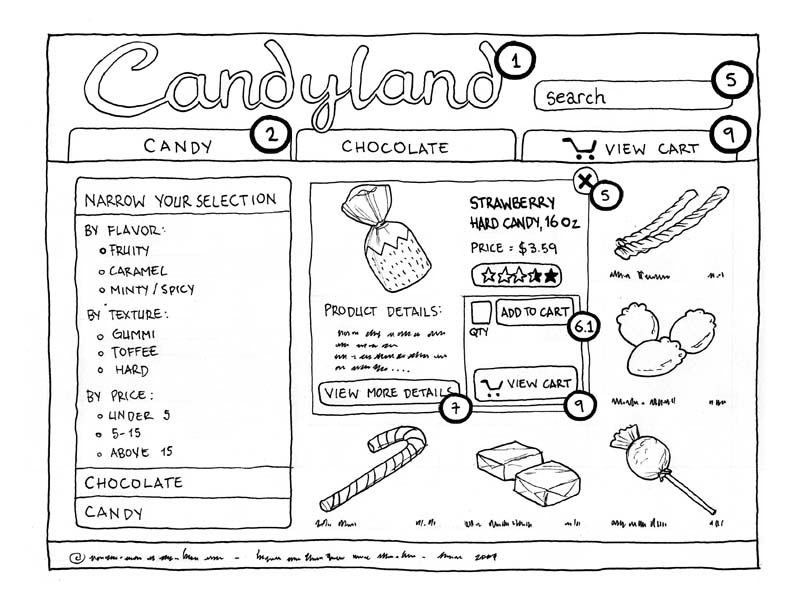 Candyland
1
search
5
CANDY
2
CHOCOLATE
VIEW CART
9
NARROW YOUR SELECTION
BY FLAVOR:
FRUITY
CARAMEL
MINTY/SPICY
BY TEXTURE:
GUMMI
TOFFEE
HARD
BY PRICE:
UNDER 5
5-15
ABOVE 15
CHOCOLATE
CANDY
X
5
STRAWBERRY
HARD CANDY, 16 Oz
PRICE = $3.59
PRODUCT DETAILS:
VIEW MORE DETAILS
7
QTY
ADD TO CART
6.1
VIEW CART
9